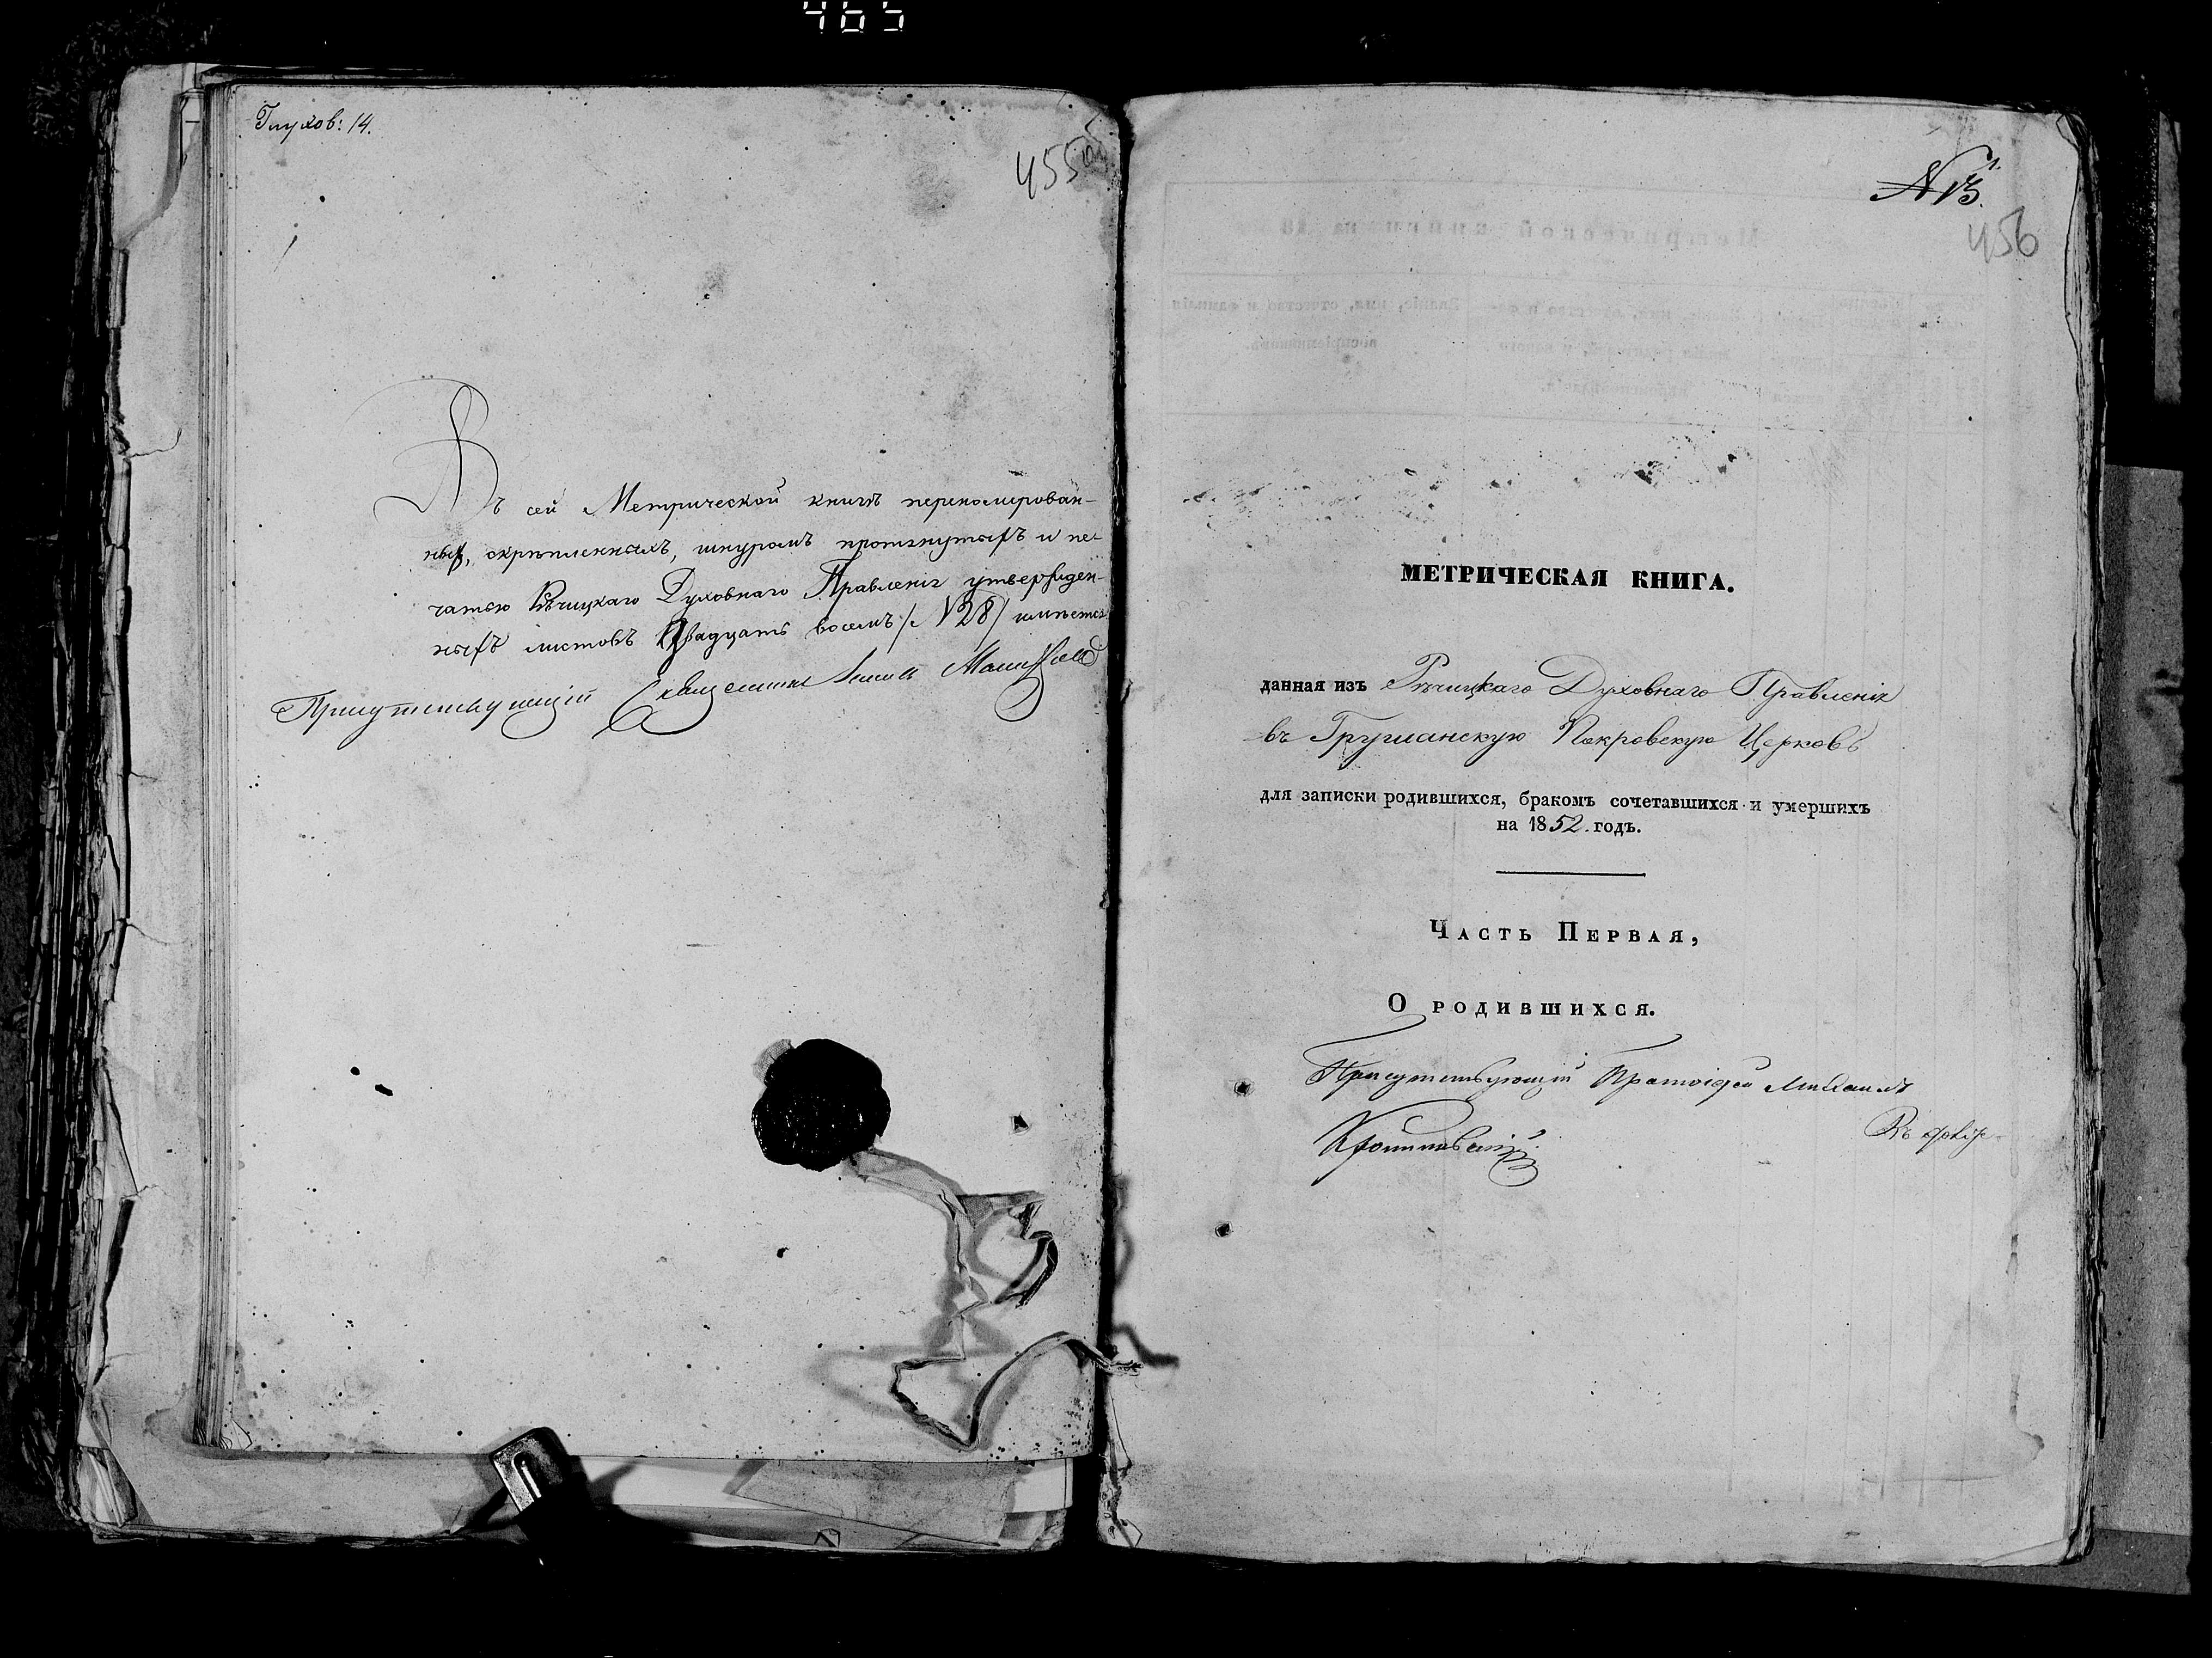 465
Глухов: 14.
455 об
Въ сей Метрической книгѣ переномерован-
ныхъ, скрѣпленныхъ, шнуромъ протянутыхъ и пе-
чатью Рѣчицкаго Духовнаго Правленія утвержден-
ныхъ листовъ Двадцать восемь /: № 28 / имѣется
Присутствующій Священникъ
№ 13.
456
МЕТРИЧЕСКАЯ КНИГА.
данная изъ Рѣчицкаго Духовнаго Правленія
въ Покровскую Церковь
для записки родившихся, бракомъ сочетавшихся и умершихъ
на 1852. годъ.
Часть Первая,
О родившихся.
Присутствующій Протоіерей Михаилъ